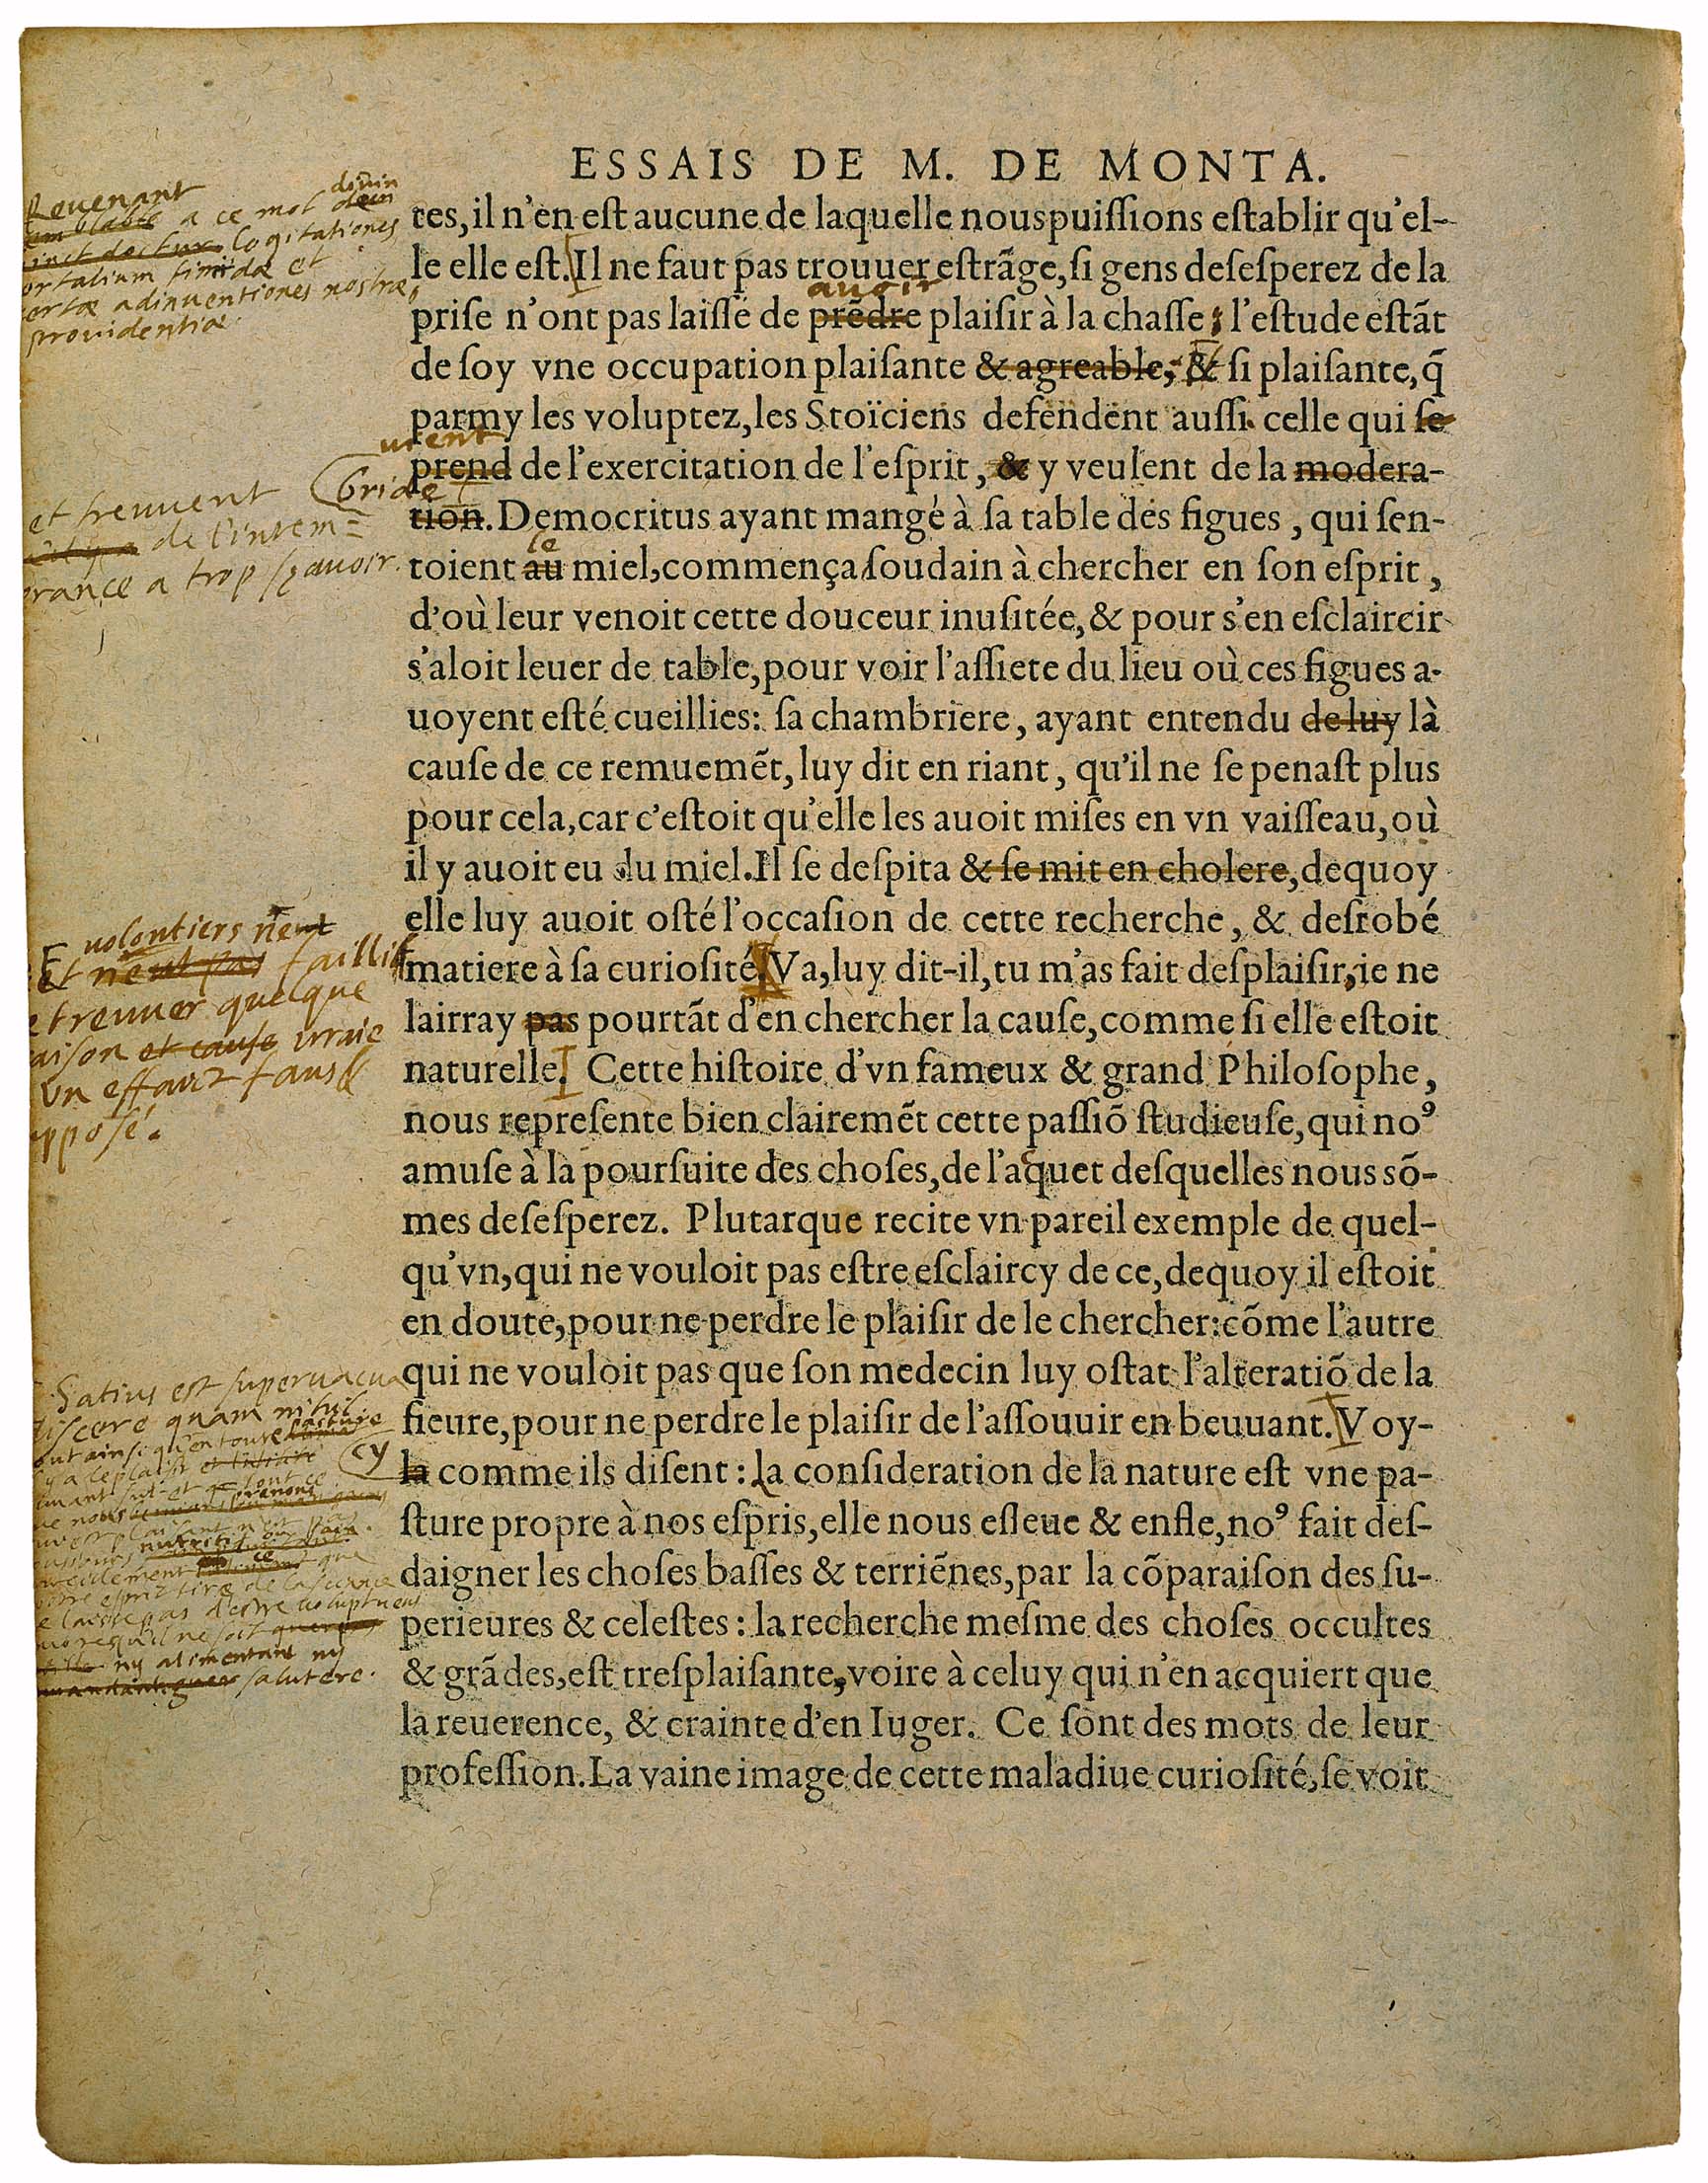 ESSAIS DE M. DE MONTA.
tes, il n'en est aucune de laquelle nous puissions establir qu'el-
le elle est. Il ne faut pas trouuer estrãge, si gens desesperez de la
auoir
prise n'ont pas laissé de prẽdre plaisir à la chasse; l'estude estãt
de soy vne occupation plaisante & agreable, & si plaisante, q̃
parmy les voluptez, les Stoïciens defendent aussi celle qui se
prend de l'exercitation de l'esprit, & y veulent de la modera-
tion. Democritus ayant mangé à sa table des figues, qui sen-
le
toient au miel, commença soudain à chercher en son esprit,
d'où leur venoit cette douceur inusitée, & pour s'en esclaircir
s'aloit leuer de table, pour voir l'assiete du lieu où ces figues a-
uoyent esté cueillies: sa chambriere, ayant entendu de luy là
cause de ce remuemẽt, luy dit en riant, qu'il ne se penast plus
pour cela, car c'estoit qu'elle les auoit mises en vn vaisseau, où
il y auoit eu du miel. Il se despita & se mit en cholere, dequoy
elle luy auoit osté l'occasion de cette recherche, & desrobé
matiere à sa curiosité. Va, luy dit-il, tu m'as fait desplaisir, ie ne
lairray pas pourtãt d'en chercher la cause, comme si elle estoit
naturelle. Cette histoire d'vn fameux & grand Philosophe,
nous represente bien clairemẽt cette passiõ studieuse, qui noꝰ
amuse à la poursuite des choses, de l'aquet desquelles nous sõ-
mes desesperez. Plutarque recite vn pareil exemple de quel-
qu'vn, qui ne vouloit pas estre esclaircy de ce, dequoy il estoit
en doute, pour ne perdre le plaisir de le chercher: cõme l'autre
qui ne vouloit pas que son medecin luy ostat l'alteratiõ de la
fieure, pour ne perdre le plaisir de l'assouuir en beuuant. Voy-
la comme ils disent: La consideration de la nature est vne pa-
sture propre à nos espris, elle nous esleue & enfle, noꝰ fait des-
daigner les choses basses & terriẽnes, par la cõparaison des su-
perieures & celestes: la recherche mesme des choses occultes
& grãdes, est tresplaisante, voire à celuy qui n'en acquiert que
la reuerence, & crainte d'en Iuger. Ce sont des mots de leur
profession. La vaine image de cette maladiue curiosité, se voit
diuin
Reuenant
a ce mot
Cogitationes
timidæ et
adinuentiones nostræ,
prouidentiæ
uent
et treuuent bride
de l'intem=
rance a trop sçauoir.
uolontiers n'eut
Et n'eut pas faillir
treuuer quelque
aison et cause uraie
un effaict faus &
pposé.
Satius est superuacua
discere quam nihil
pasture
cy
tire de la sciance
ny alimentant ny
salutere.